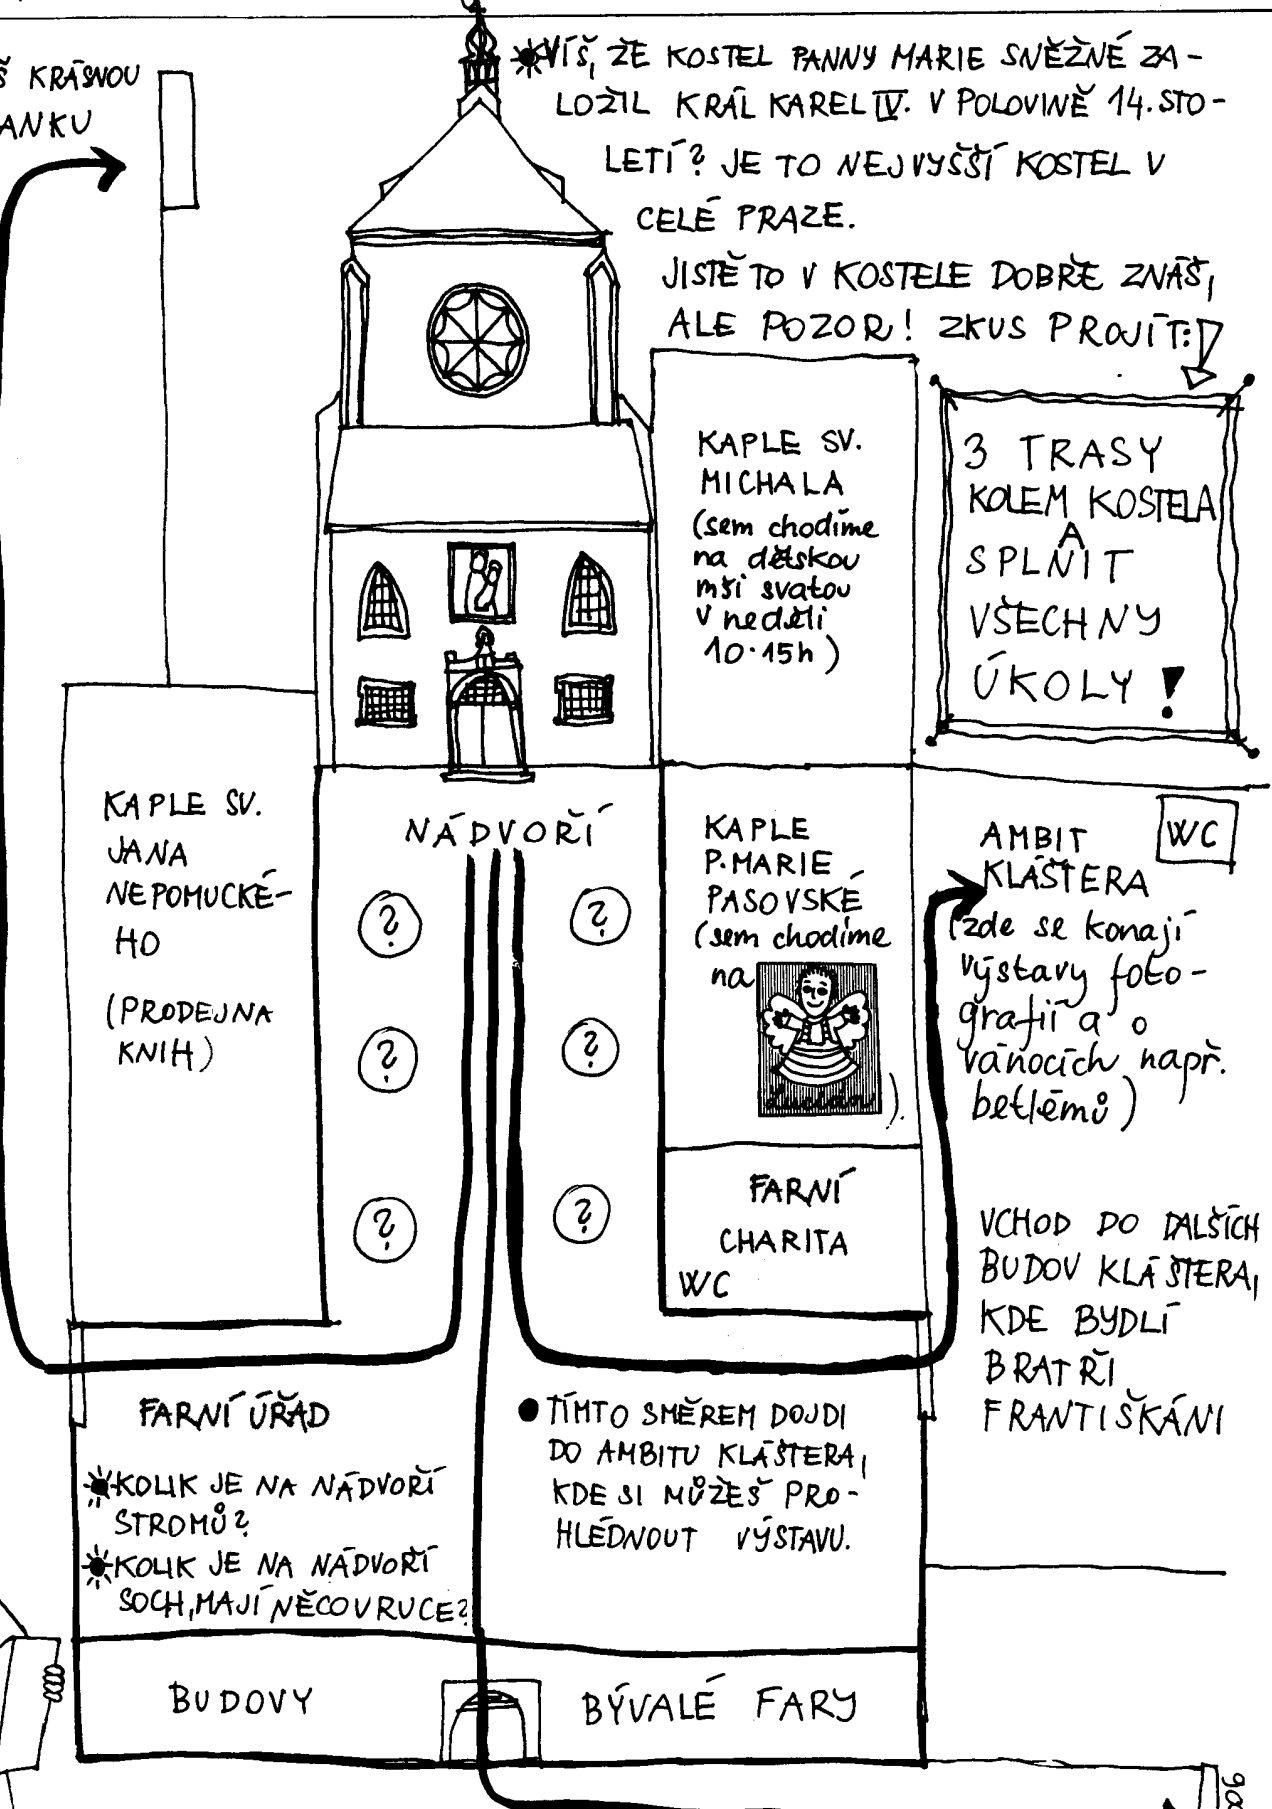 Š KRÁSNOU
ANKU
VÍŠ, ŽE KOSTEL PANNY MARIE SNĚŽNÉ ZA-
LOŽIL KRÁL KAREL IV. V POLOVINĚ 14. STO-
LETÍ? JE TO NEJVYŠŠÍ KOSTEL V
CELÉ PRAZE.
JISTĚ TO V KOSTELE DOBŘE ZNÁŠ,
ALE POZOR! ZKUS PROJÍT:
3 TRASY
KOLEM KOSTELA
A
SPLNIT
VŠECHNY
ÚKOLY!
KAPLE SV.
MICHALA
(sem chodíme
na dětskou
mši svatou
v neděli
10.15h)
KAPLE SV.
JANA
NEPOMUCKÉ-
HO
(PRODEJNA
KNIH)
NÁDVOŘÍ
?
?
?
?
?
?
KAPLE
P. MARIE
PASOVSKÉ
(sem chodíme
na
Lucián
).
FARNÍ
CHARITA
WC
WC
AMBIT
KLÁŠTERA
(zde se konají
výstavy foto-
grafií a o
vánocích např.
betlémů)
VCHOD DO DALŠÍCH
BUDOV KLÁŠTERA,
KDE BYDLÍ
BRATŘI
FRANTIŠKÁNI
FARNÍ ÚŘAD
KOLIK JE NA NÁDVOŘÍ
STROMŮ?
KOLIK JE NA NÁDVOŘÍ
SOCH, MAJÍ NĚCO V RUCE?
TÍMTO SMĚREM DOJDI
DO AMBITU KLÁŠTERA,
KDE SI MŮŽEŠ PRO-
HLÉDNOUT VÝSTAVU.
BUDOVY
BÝVALÉ FARY